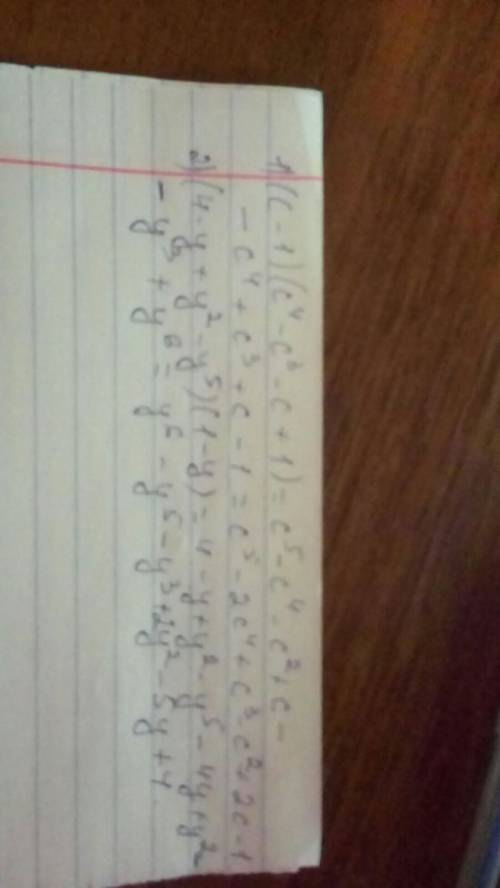 1) (c-1)(c⁴-c³-c+1)=c⁵-c⁴-c²+c-
-c⁴+c³+c-1=c⁵-2c⁴+c³-c²+2c-1
2) (4-y+y²-y⁵)(1-y)=4-y+y²-y⁵-4y+y²-
-y³+y⁶=y⁶-y⁵-y³+2y²-5y+4.